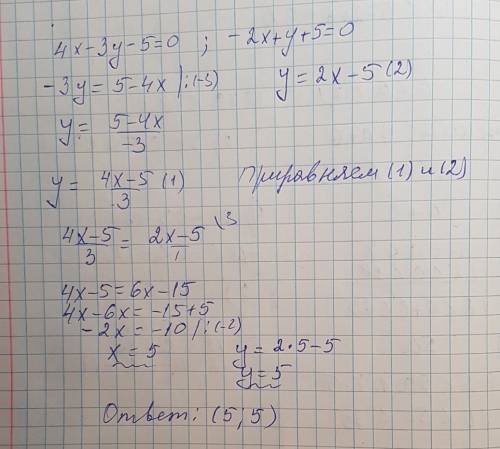 4x-3y-5=0 ; -2x+y+5=0
-3y=5-4x |:(-3) y=2x-5 (2)
y= (5-4x)/(-3)
y= (4x-5)/3 (1) Приравняем (1) и (2)
(4x-5)/3 = (2x-5)/1 \3
4x-5=6x-15
4x-6x=-15+5
-2x=-10 |:(-2)
x=5 y=2·5-5
y=5
Ответ: (5;5)